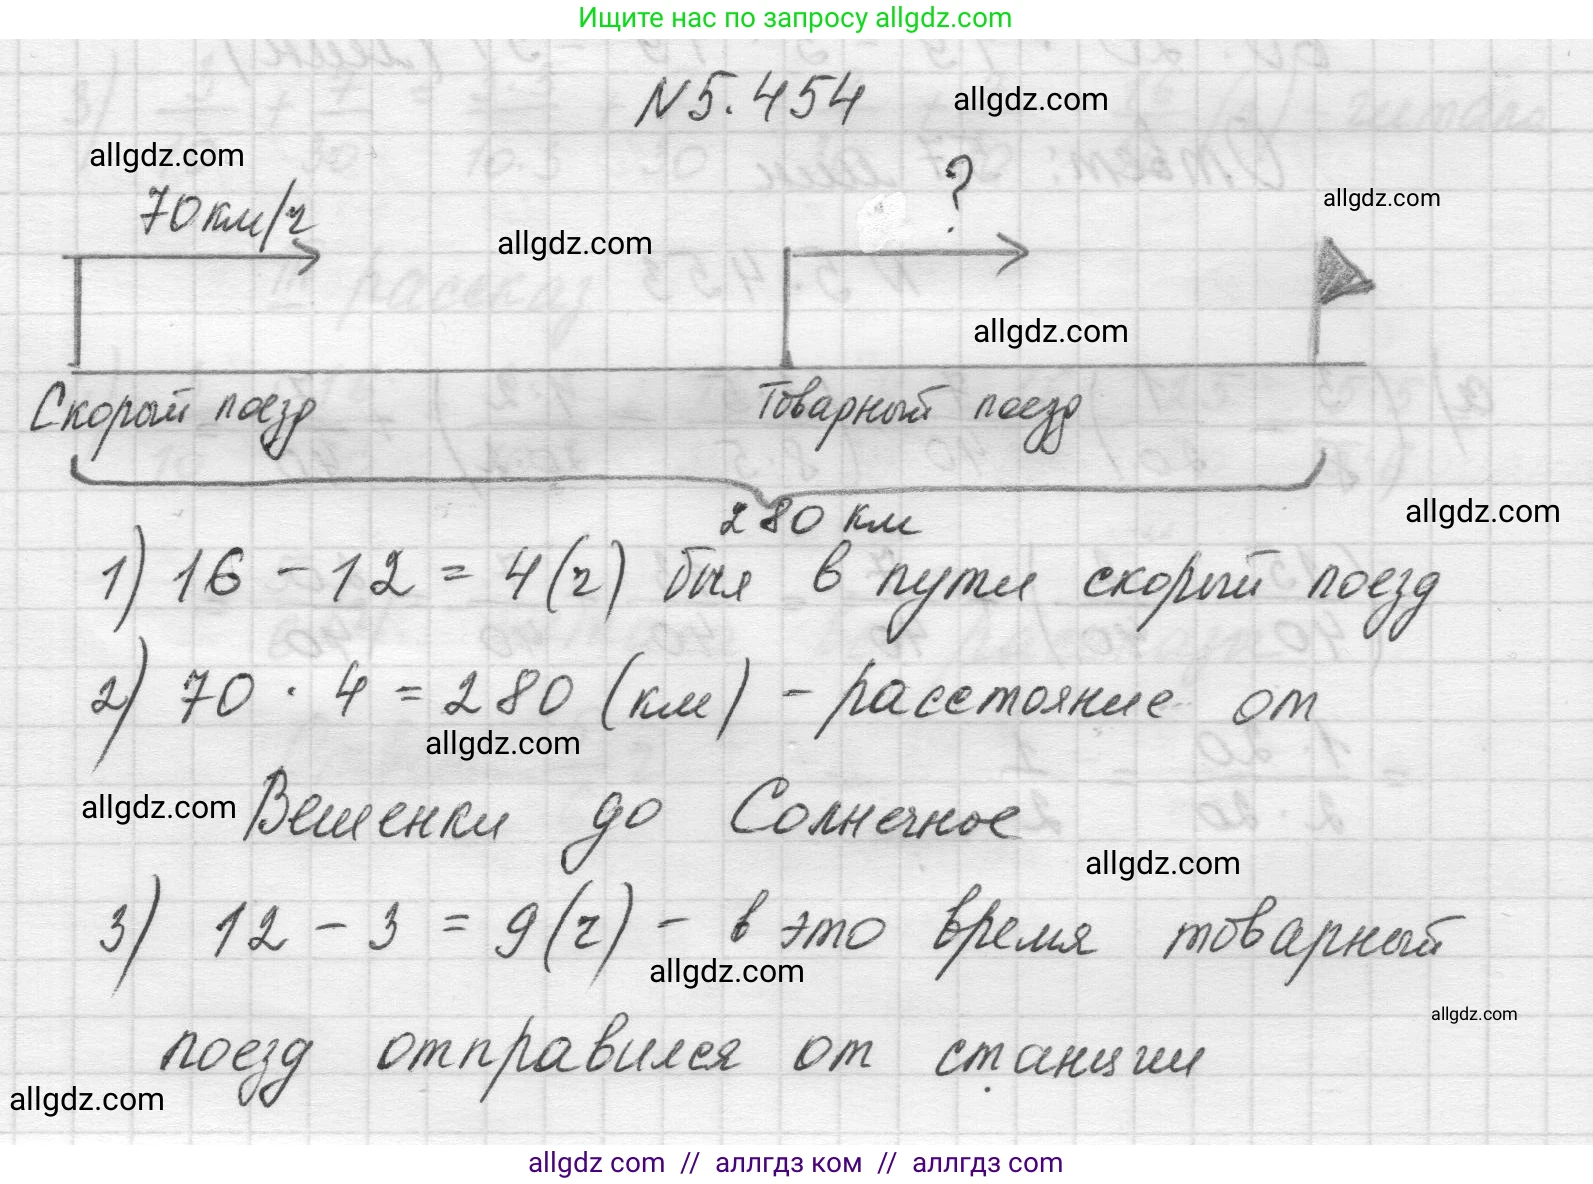 Ищите нас по запросу allgdz.com
N 5.454
allgdz.com
allgdz.com
?
allgdz.com
70 км/ч
allgdz.com
allgdz.com
Скорый поезд
Товарный поезд
280 км
allgdz.com
1) 16 - 12 = 4 (ч) был в пути скорый поезд
2) 70 · 4 = 280 (км) - расстояние от
allgdz.com
allgdz.com
Вешенки до Солнечное
allgdz.com
3) 12 - 3 = 9 (ч) - в это время товарный
allgdz.com
allgdz.com
поезд отправился от станции
allgdz.com
allgdz com // аллгдз ком // аллгдз com